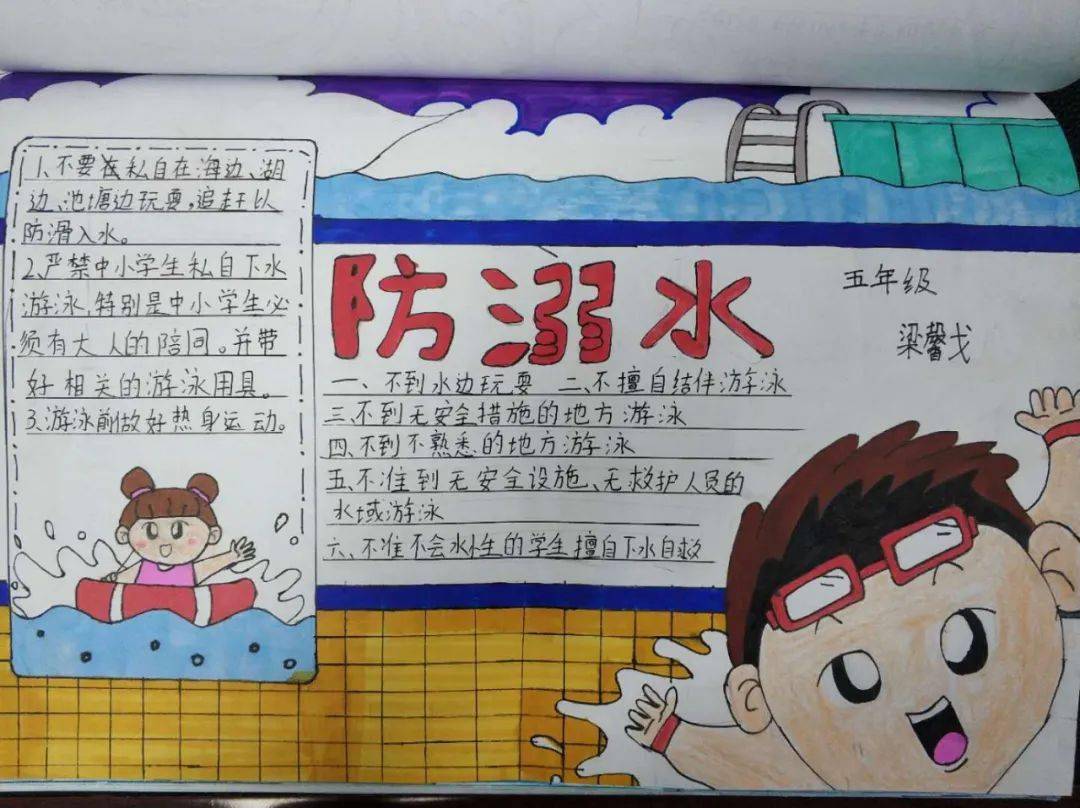 1、不要私自在海边、湖
边、池塘边玩耍,追赶以
防滑入水。
2、严禁中小学生私自下水
游泳,特别是中小学生必
须有大人的陪同。并带
好相关的游泳用具。
3、游泳前做好热身运动。
防溺水
五年级
梁馨戈
一、不到水边玩耍 二、不擅自结伴游泳
三、不到无安全措施的地方游泳
四、不到不熟悉的地方游泳
五、不准到无安全设施、无救护人员的
水域游泳
六、不准不会水性的学生擅自下水自救